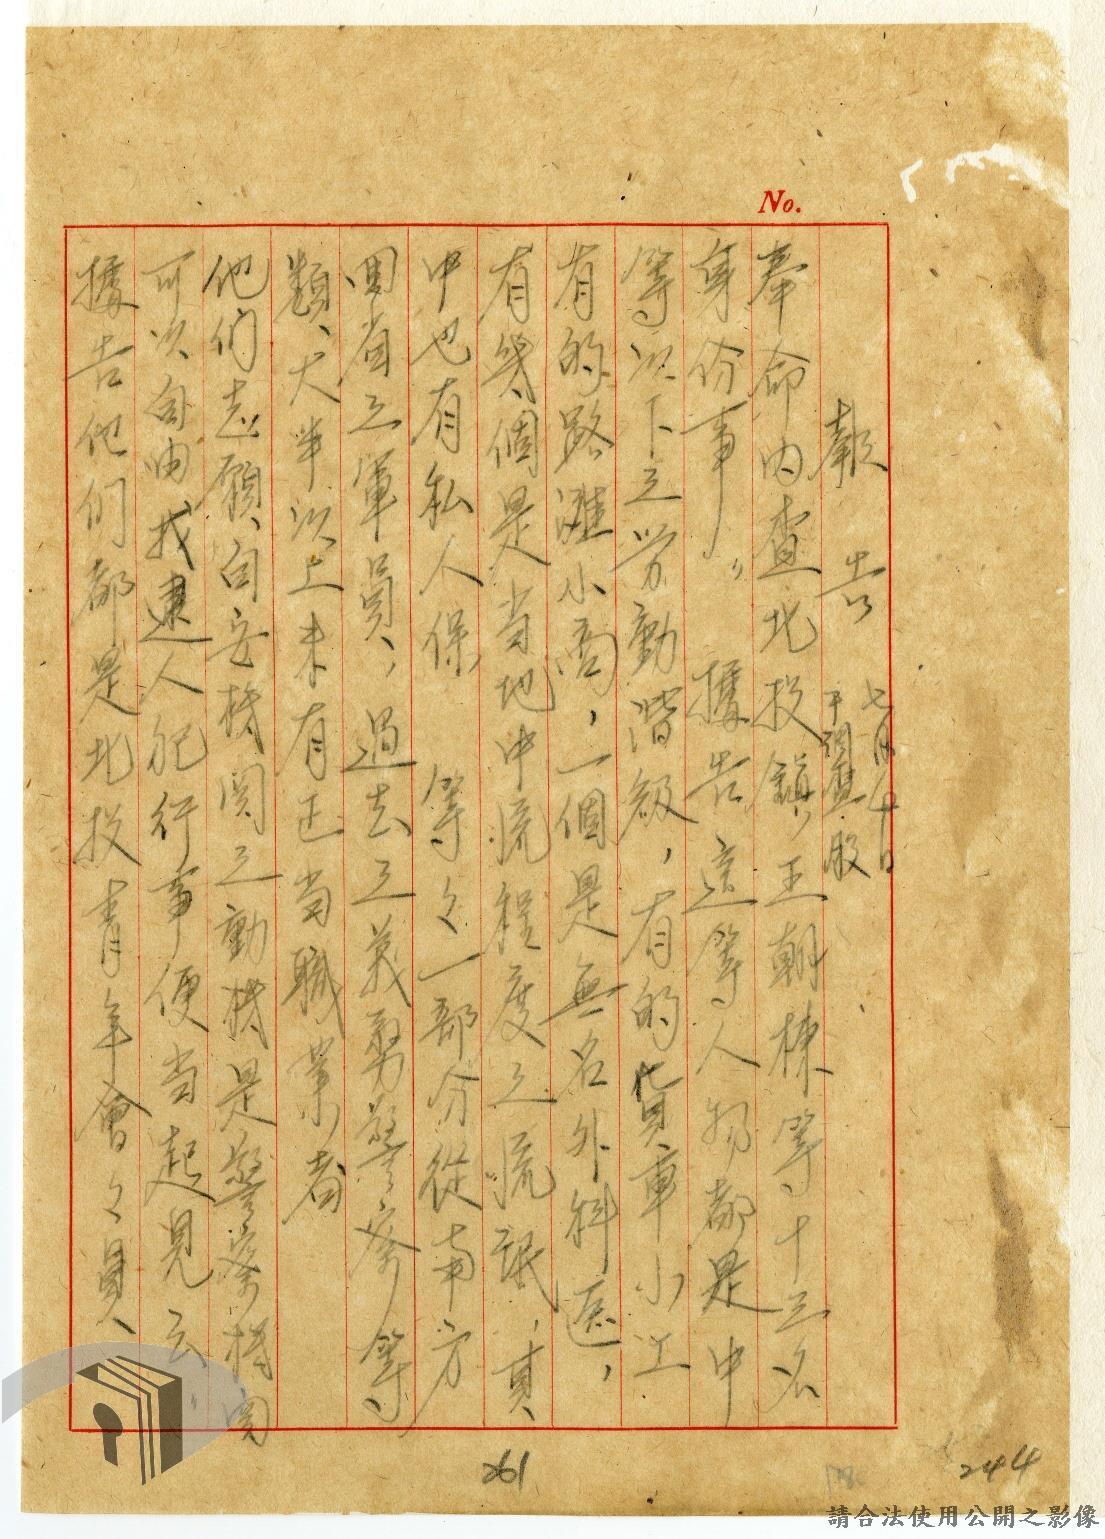 No.
報告 七月十日
于調查股
奉命內查北投鎮王朝棟等十三名
身份事。據告這等人物都是中
等以下之労動階級，有的貨車小工
有的路灘小商，一個是無名外科医，
有幾個是当地中流程度之流氓，其
中也有私人保 等々一部分從南方
回省之軍員，過去之義勇警察等
類、大半以上未有正当職業者
他们志願向安機関之動機是警察機関
可以自由找逮人犯行事便当起見云。
據告他们都是北投青年會々員
261
244
請合法使用公開之影像